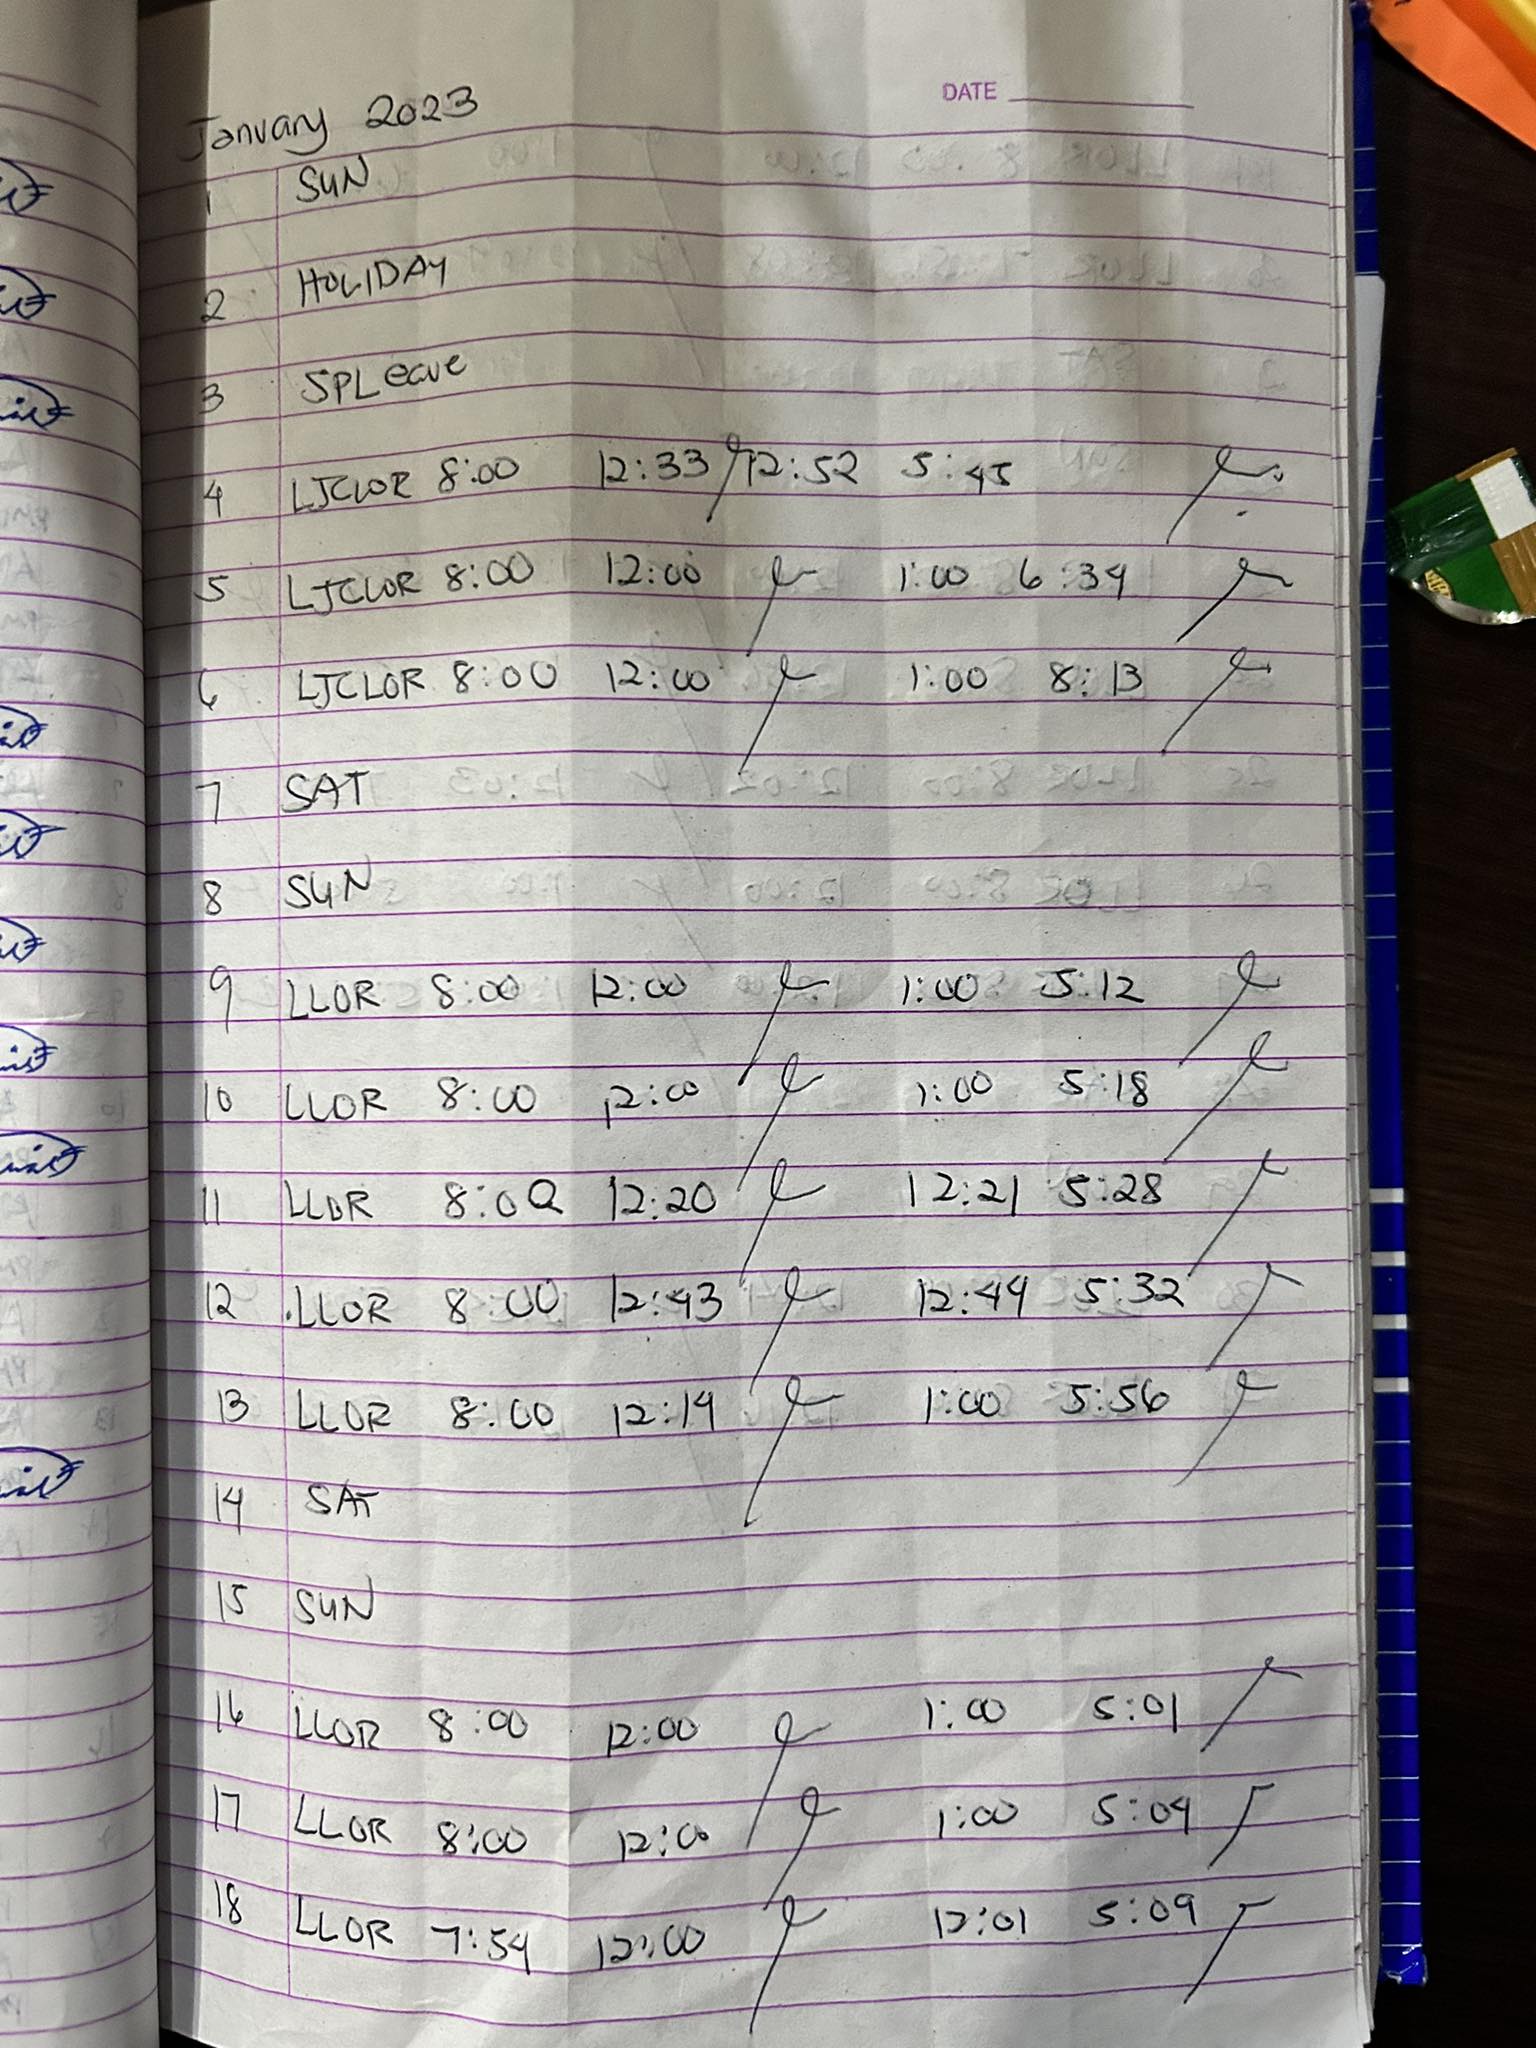 DATE
January 2023
1 SUN
2 HOLIDAY
3 SPLeave
4 LJCLOR 8:00 12:33 12:52 5:45
5 LJCLOR 8:00 12:00 1:00 6:34
6 LJCLOR 8:00 12:00 1:00 8:13
7 SAT
8 SUN
9 LLOR 8:00 12:00 1:00 5:12
10 LLOR 8:00 12:00 1:00 5:18
11 LLOR 8:00 12:20 12:21 5:28
12 LLOR 8:00 12:43 12:44 5:32
13 LLOR 8:00 12:14 1:00 5:56
14 SAT
15 SUN
16 LLOR 8:00 12:00 1:00 5:01
17 LLOR 8:00 12:00 1:00 5:04
18 LLOR 7:54 12:00 12:01 5:09